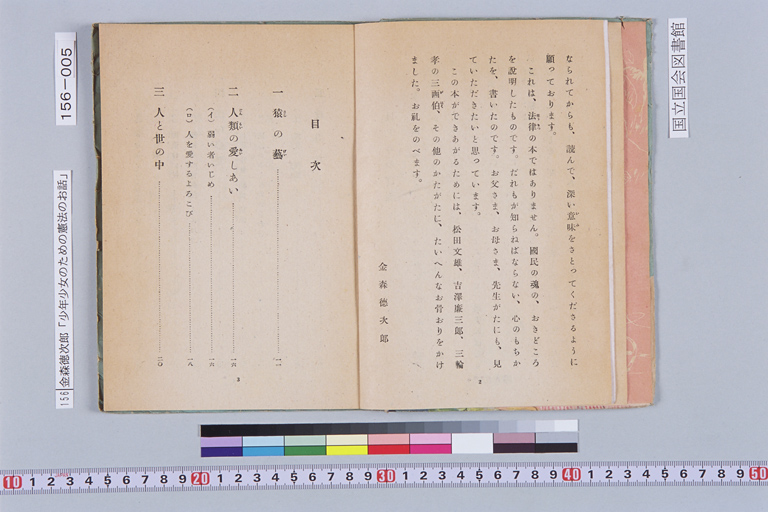 なられてからも、読んで、深い意味をさとってくださるように
願っております。
これは、法律の本ではありません。國民の魂の、おきどころ
を説明したものです。だれもが知らねばならない、心のもちか
たを、書いたのです。お父さま、お母さま、先生がたにも、見
ていただきたいと思っています。
この本ができあがるためには、松田文雄、吉澤廉三郎、三輪
孝の三画伯、その他のかたがたに、たいへんなお骨おりをかけ
ました。お礼をのべます。
金森德次郎
2
目次
一 猿の藝 一一
二 人類の愛しあい 一六
(イ) 弱い者いじめ 一六
(ロ) 人を愛するよろこび 一八
三 人と世の中 二〇
3
156-005
156 金森徳次郎「少年少女のための憲法のお話」
国立国会図書館
10 1 2 3 4 5 6 7 8 9 20 1 2 3 4 5 6 7 8 9 30 1 2 3 4 5 6 7 8 9 40 1 2 3 4 5 6 7 8 9 50